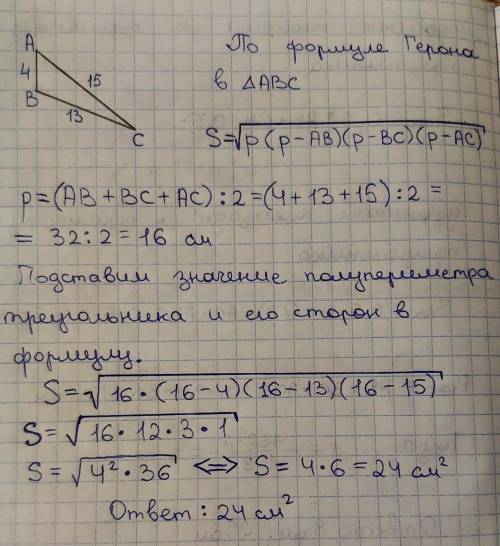 A
4
15
B
13
C
По формуле Герона
в △ABC
S=√p(p-AB)(p-BC)(p-AC)
p=(AB+BC+AC):2=(4+13+15):2=
= 32:2=16 см
Подставим значение полупериметра
треугольника и его сторон в
формулу.
S=√16·(16-4)(16-13)(16-15)
S=√16·12·3·1
S=√4²·36 ⟺ S=4·6=24 см²
Ответ: 24 см²